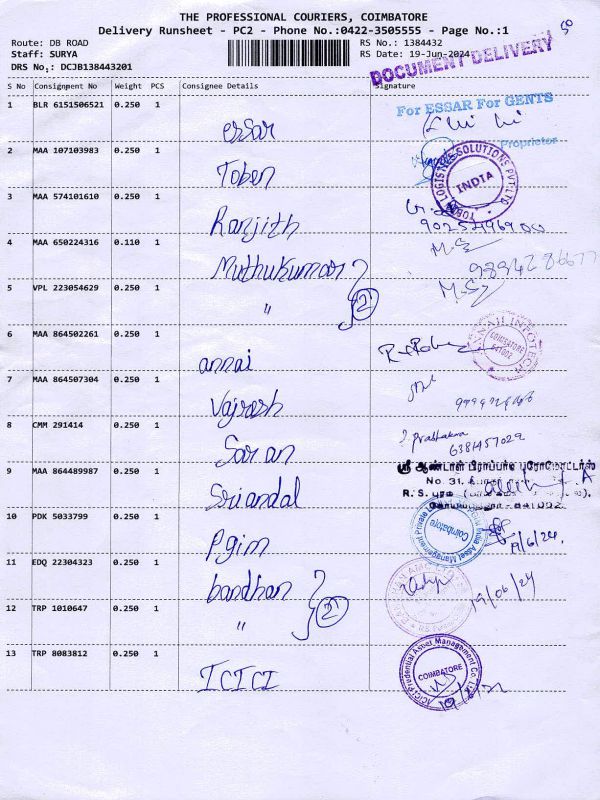 THE PROFESSIONAL COURIERS, COIMBATORE
Delivery Runsheet - PC2 - Phone No.:0422-3505555 - Page No.:1
Route: DB ROAD RS No.: 1384432
Staff: SURYA RS Date: 19-Jun-2024
DRS No.: DCJB138443201
DOCUMENT DELIVERY
S No Consignment No Weight PCS Consignee Details Signature
For ESSAR For GENTS
1 BLR 6151506521 0.250 1 essar
Proprietor
2 MAA 107103983 0.250 1 Toben
LOGISTICS SOLUTIONS PVT LTD
INDIA
3 MAA 574101610 0.250 1 Ranjith
4 MAA 650224316 0.110 1 Muthukumar
5 VPL 223054629 0.250 1 " 2
6 MAA 864502261 0.250 1 annai
INFOTECH
COIMBATORE
7 MAA 864507304 0.250 1 Vajresh
8 CMM 291414 0.250 1 Saran
Prabhakra
6381457029
9 MAA 864489987 0.250 1 Sriandal
ஸ்ரீ ஆண்டாள் பிராப்பர்டி புரோமோட்டர்ஸ்
No. 31,
R.S. புரம்
10 PDK 5033799 0.250 1 Pgim
India Asset Management Private
Coimbatore
19/6/24
11 EDQ 22304323 0.250 1 bandhan
19/06/24
12 TRP 1010647 0.250 1 " 2
13 TRP 8083812 0.250 1 ICICI
ICICI Prudential Asset Management Co. Ltd
COIMBATORE